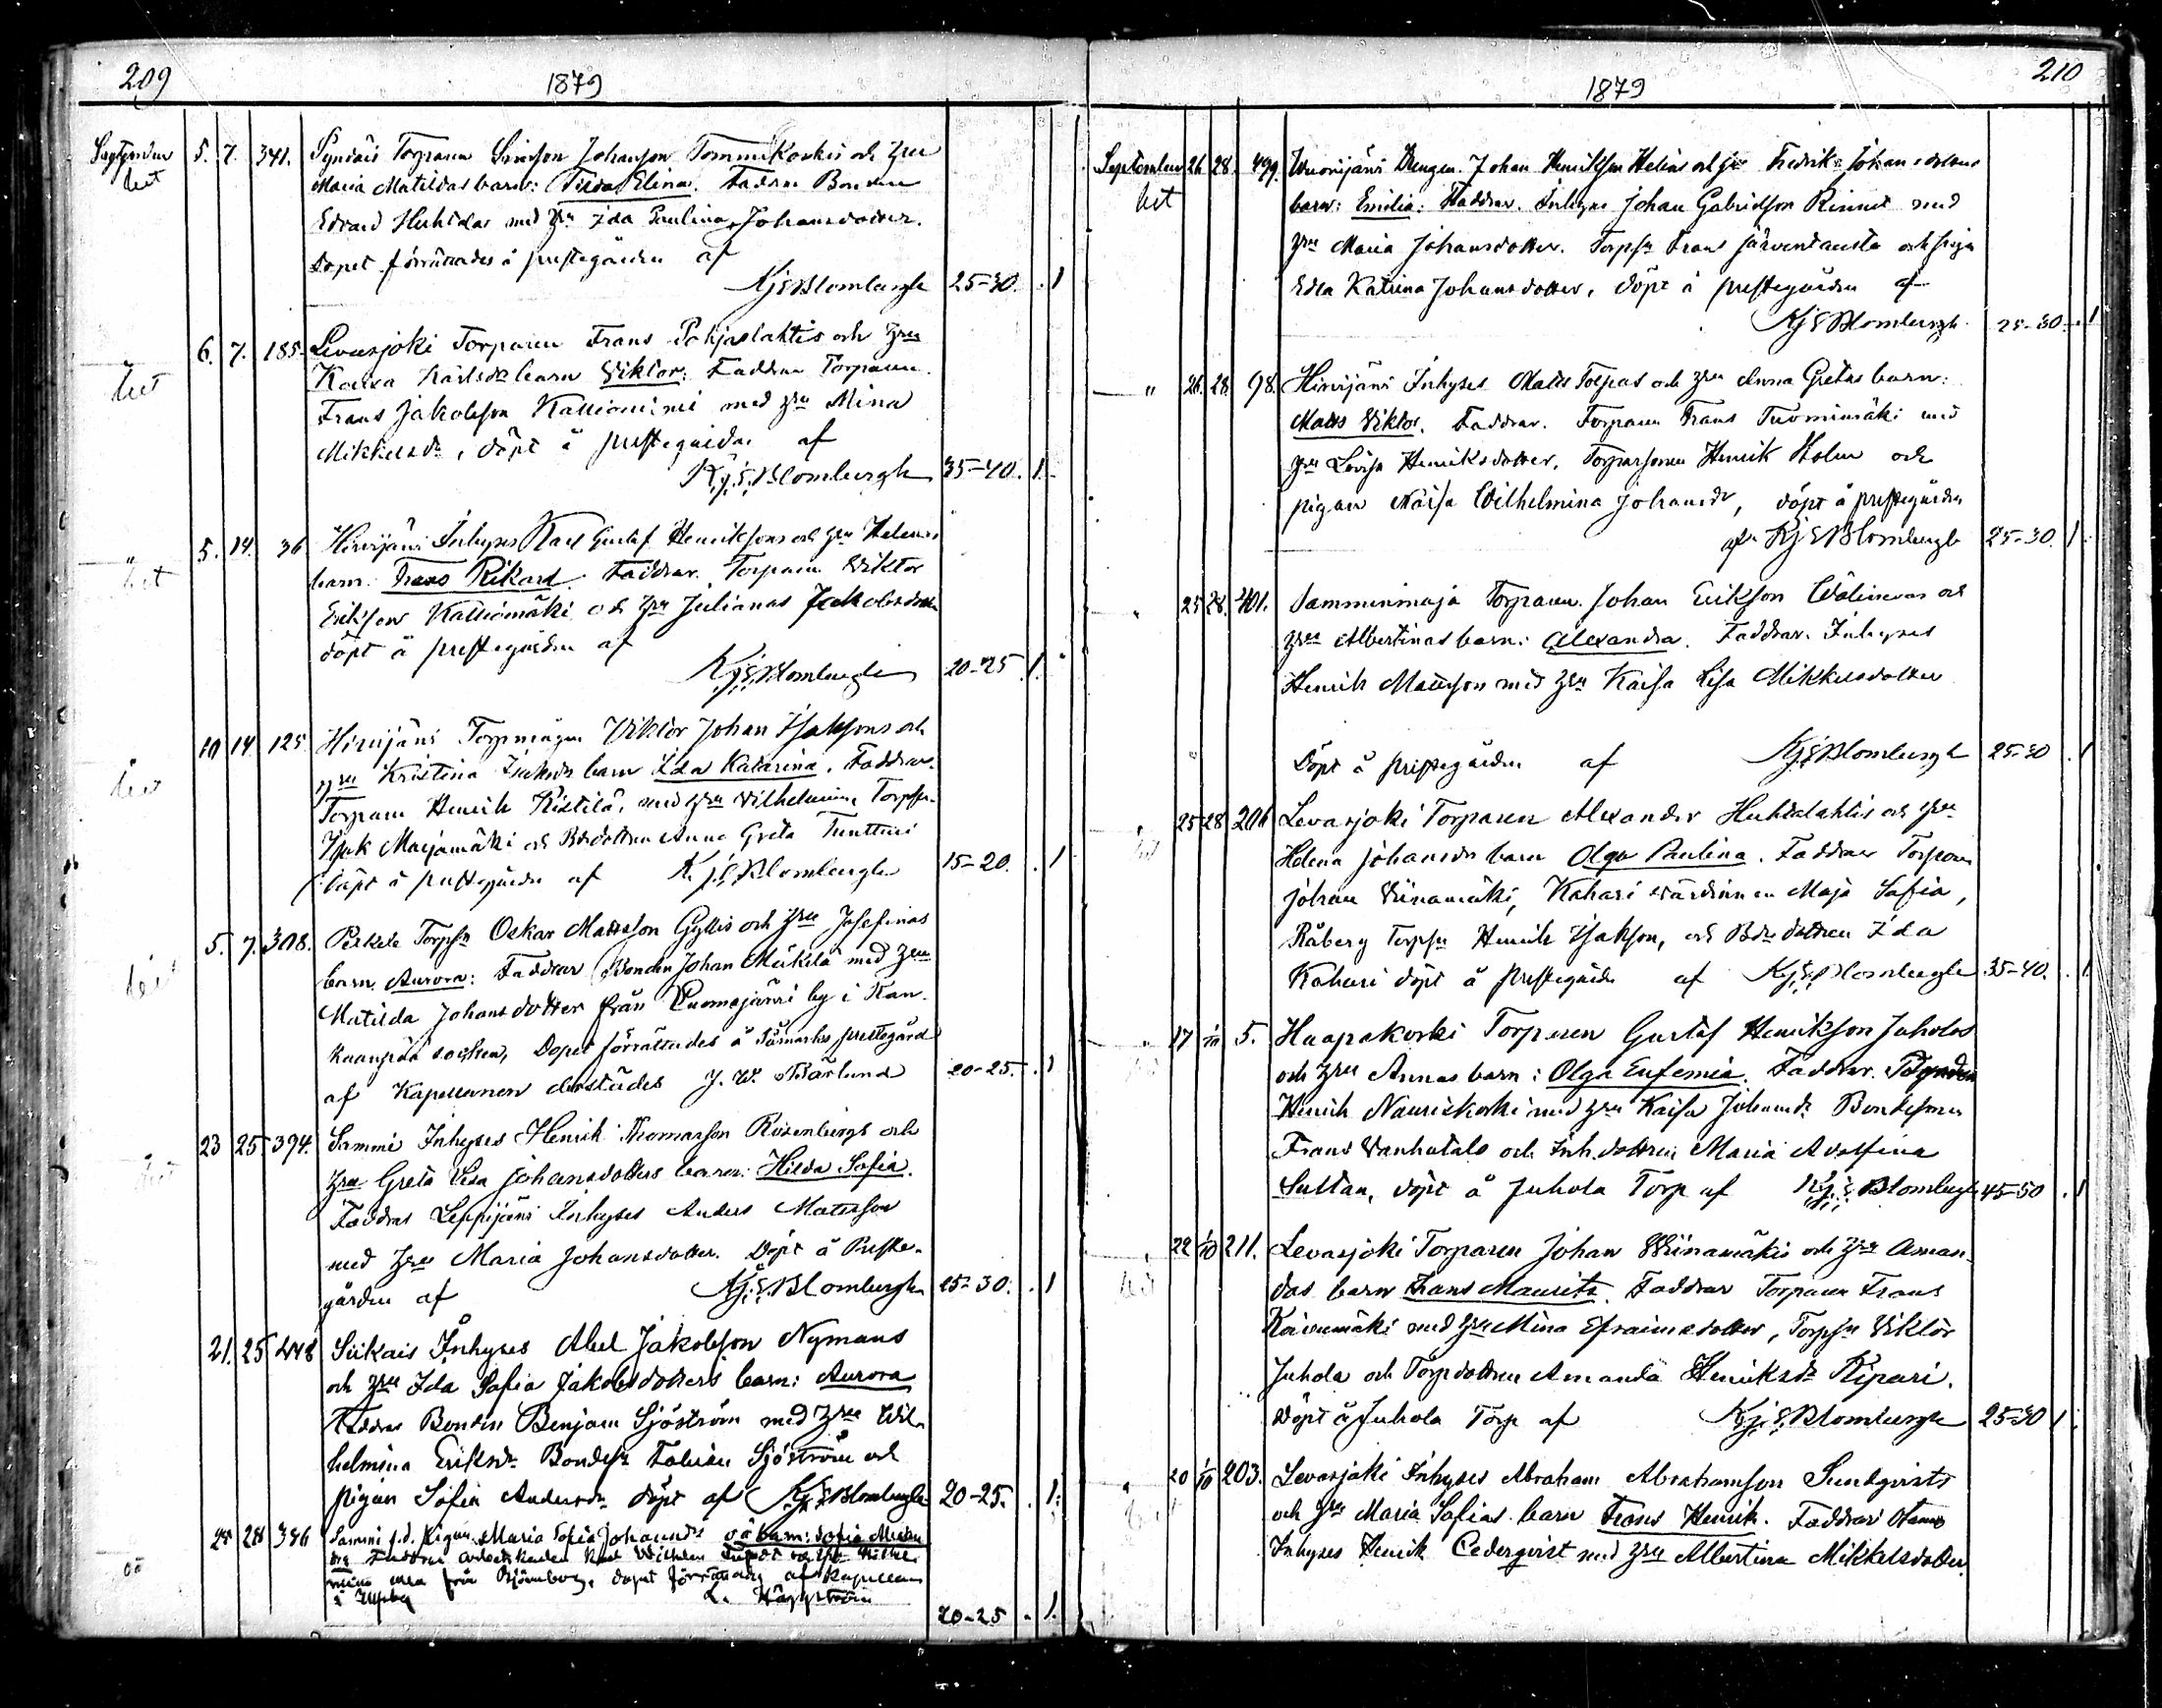 209
1879
September 5. 7. 341. Syndäis Torparen Simson Johanson Tommikoskis och hru
het Maria Matildas barn: Tilda Elina. Faddrar Bonden
Edvard Huhtalas med hru Ida Paulina Johansdotter.
Dopet förrättades å prestegården af
Kj E Blombergh 25-30. 1
6. 7. 185. Levasjoki Torparen Frans Pohjaslahtis och hru
het Karlsdr barn Viktor: Faddrar Torparen
Frans Jakobson Kallioniemi med hru Mina
Mikkelsdr, döpt å prestegården af
Kj. E. Blombergh 35-40. 1.
" 5. 14. 36 Hirvijärvi Inhyses Karl Gustaf Henriksons och hru Helenas
het barn: Frans Rikard. Faddrar. Torparen Viktor
Erikson Kalliomäki och hru Julianas Jakobsdotter
döpt å prestegården af
Kj E Blombergh 20-25 1.
10 14 125 Hirvijärvi Torpmågen Viktor Johan Isaksons och
het hru Kristina barn Ida Katarina. Faddrar.
Torparen Henrik Kistilä, med hru Vilhelmina Torpsn
Isak Marjamäki och Bdedottren Anna Greta Tuntturi
döpt å prestegården af K. j. E Blombergh 15-20. 1
5. 7. 308. Torpsn Oskar Mattsson Gyllis och hru Josefinas
het barn. Aurora: Faddrar Bonden Johan Mäkelä med hru
Matilda Johansdotter från Euomajärvi by i Kan-
kaanpää socken, Dopet förrättades å Påmarks prestegård
af Kapellanen derstädes J. W. Bärlund 20-25. 1
23 25 394. Sammi Inhyses Henrik Thomasson Rosenbergs och
het hru Greta Lisa Johansdotters barn: Hilda Sofia.
Faddrar Leppijärvi Inhyses Anders Matsson
med hru Maria Johansdotter. Döpt å Preste-
gården af Kj. E. Blombergh 25-30. 1
21. 25 448 Siikais Inhyses Abel Jakobson Nymans
och hru Ida Sofia Jakobsdotters barn: Aurora
Faddrar Bonden Benjam Sjöström med hru Wil-
helmina Eriksdr. Bondesn Fabian Sjöström och
pigan Sofia Andersdr döpt af Kj E Blombergh 20-25. 1.
28 386 Sammi f.d. pigan Maria Sofia Johansdrs oä barn: Sofia
oä Faddrar Karl Vilhelm
från Björneborg. dopet förrättades af Kapellanen
i Ulfsby L. Häggström
20-25 1.
210
1879
September 26. 28. 499. Drengen Johan Henrikson Helins och hru Fredrika Johansdotters
het barn: Emilia. Faddrar. Inhyses Johan Gabrielson Rinnet med
hru Maria Johansdotter. Torpsn Frans Järventausta och pigan
Edla Katrina Johansdotter, döpt å prestegården af
Kj E Blombergh 25-30. 1
" 26. 28. 98. Hirvijärvi Inhyses Matts Tolpas och hru Anna Gretas barn:
Matts Viktor. Faddrar. Torparen Frans Tuomimäki med
hru Lovisa Henriksdotter, Torparsonen Henrik Holm och
pigan Kaisa Wilhelmina Johansdr, döpt å prestegården
af Kj E Blombergh 25-30. 1
" 25 28. 401. Samminmaja Torparen Johan Erikson Wälimaas och
hru Albertinas barn: Alexandra. Faddrar. Inhyses
Henrik Mattsson med hru Kaisa Lisa Mikkelsdotter
Döpt å prestegården af Kj E Blombergh 25-30 1
" 25 28 206 Levasjoki Torparen Alexander Huhtalahtis och hru
het Helena Johansdr barn Olga Paulina. Faddrar Torparen
Johan Viinamäki, Kahari värdinnan Maja Sofia,
Råberg Torpsn Henrik Isakson, och Bdedottren Ida
Kahari döpt å prestegården af Kj. E. Blombergh 35-40. 1
" 17 1/10 5. Haapakoski Torparen Gustaf Henrikson Juholas
och hru Annas barn: Olga Eufemia. Faddrar.
Henrik Nauriskoski med hru Kaisa Johansdr Bondesonen
Frans Vanhatalo och Inh. dottren Maria Adolfina
Sultan, döpt å Juhola Torp af Kj. E. Blombergh 45-50 1
" 22 1/10 211. Levasjoki Torparen Johan Wiinamäkis och hru Aman-
het das barn Frans Maurits. Faddrar Torparen Frans
Koivumäki med hru Mina Efraimsdotter, Torpsn Viktor
Juhola och Torpdottren Amanda Henriksdr Ripari.
Döpt å Juhola Torp af Kj. E. Blombergh 25-30 1
" 20 1/10 203. Levasjoki Inhyses Abraham Abrahamson Sundqvists
het och hru Maria Sofias barn Frans Henrik. Faddrar
Inhyses Henrik Cederqvist med hru Albertina Mikkelsdotter.